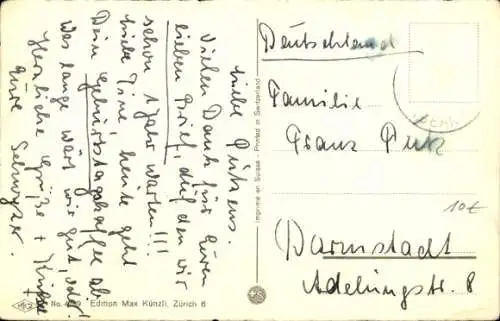 Liebe Pützens.
Vielen Dank für Euren
lieben Brief, auf den wir
schon 1 Jahr warten!!!
Liebe Tine, heute geht
Dein Geburtstagskaffee ab.
Was lange währt wir gut, oder?
Herzliche Grüße + Küsse
Eure Schwyzer.
No. Edition Max Künzli, Zürich 6
Imprimé en Suisse - Printed in Switzerland
Deutschland
Familie
Franz Pütz
Darmstadt
Adelungstr. 8
10€